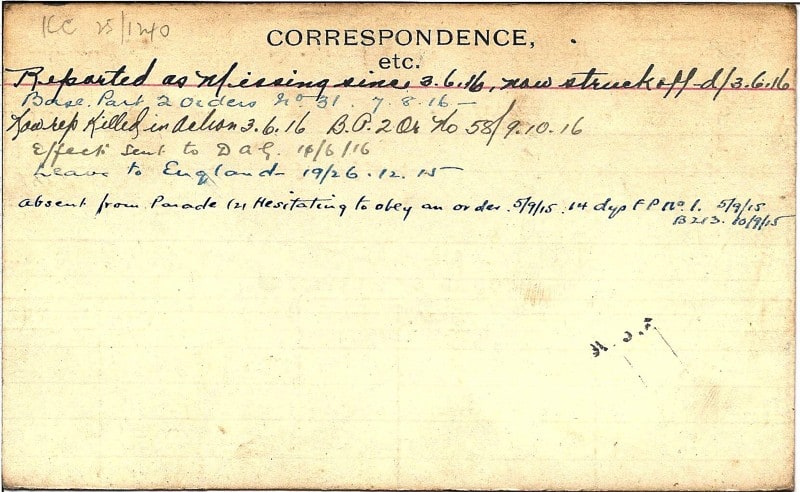 KC 25/1240
CORRESPONDENCE,
etc.
Reported as Missing since, 3.6.16, now struck off d/3.6.16
Base. Part 2 Orders No 31. 7.8.16 -
Now rep Killed in Action 3.6.16 B.P. 2 Or No 58/9.10.16
Effects Sent to D A G. 14/6/16
Leave to England 19/26.12.15
absent from Parade (2) Hesitating to obey an order. 5/9/15. 14 dys F P No 1. 5/9/15
B 213. 10/9/15